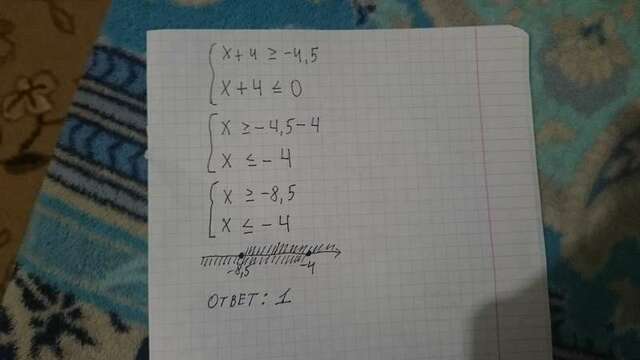 x+4 ≥ -4,5
x+4 ≤ 0
x ≥ -4,5-4
x ≤ -4
x ≥ -8,5
x ≤ -4
-8,5 -4
ОТВЕТ: 1